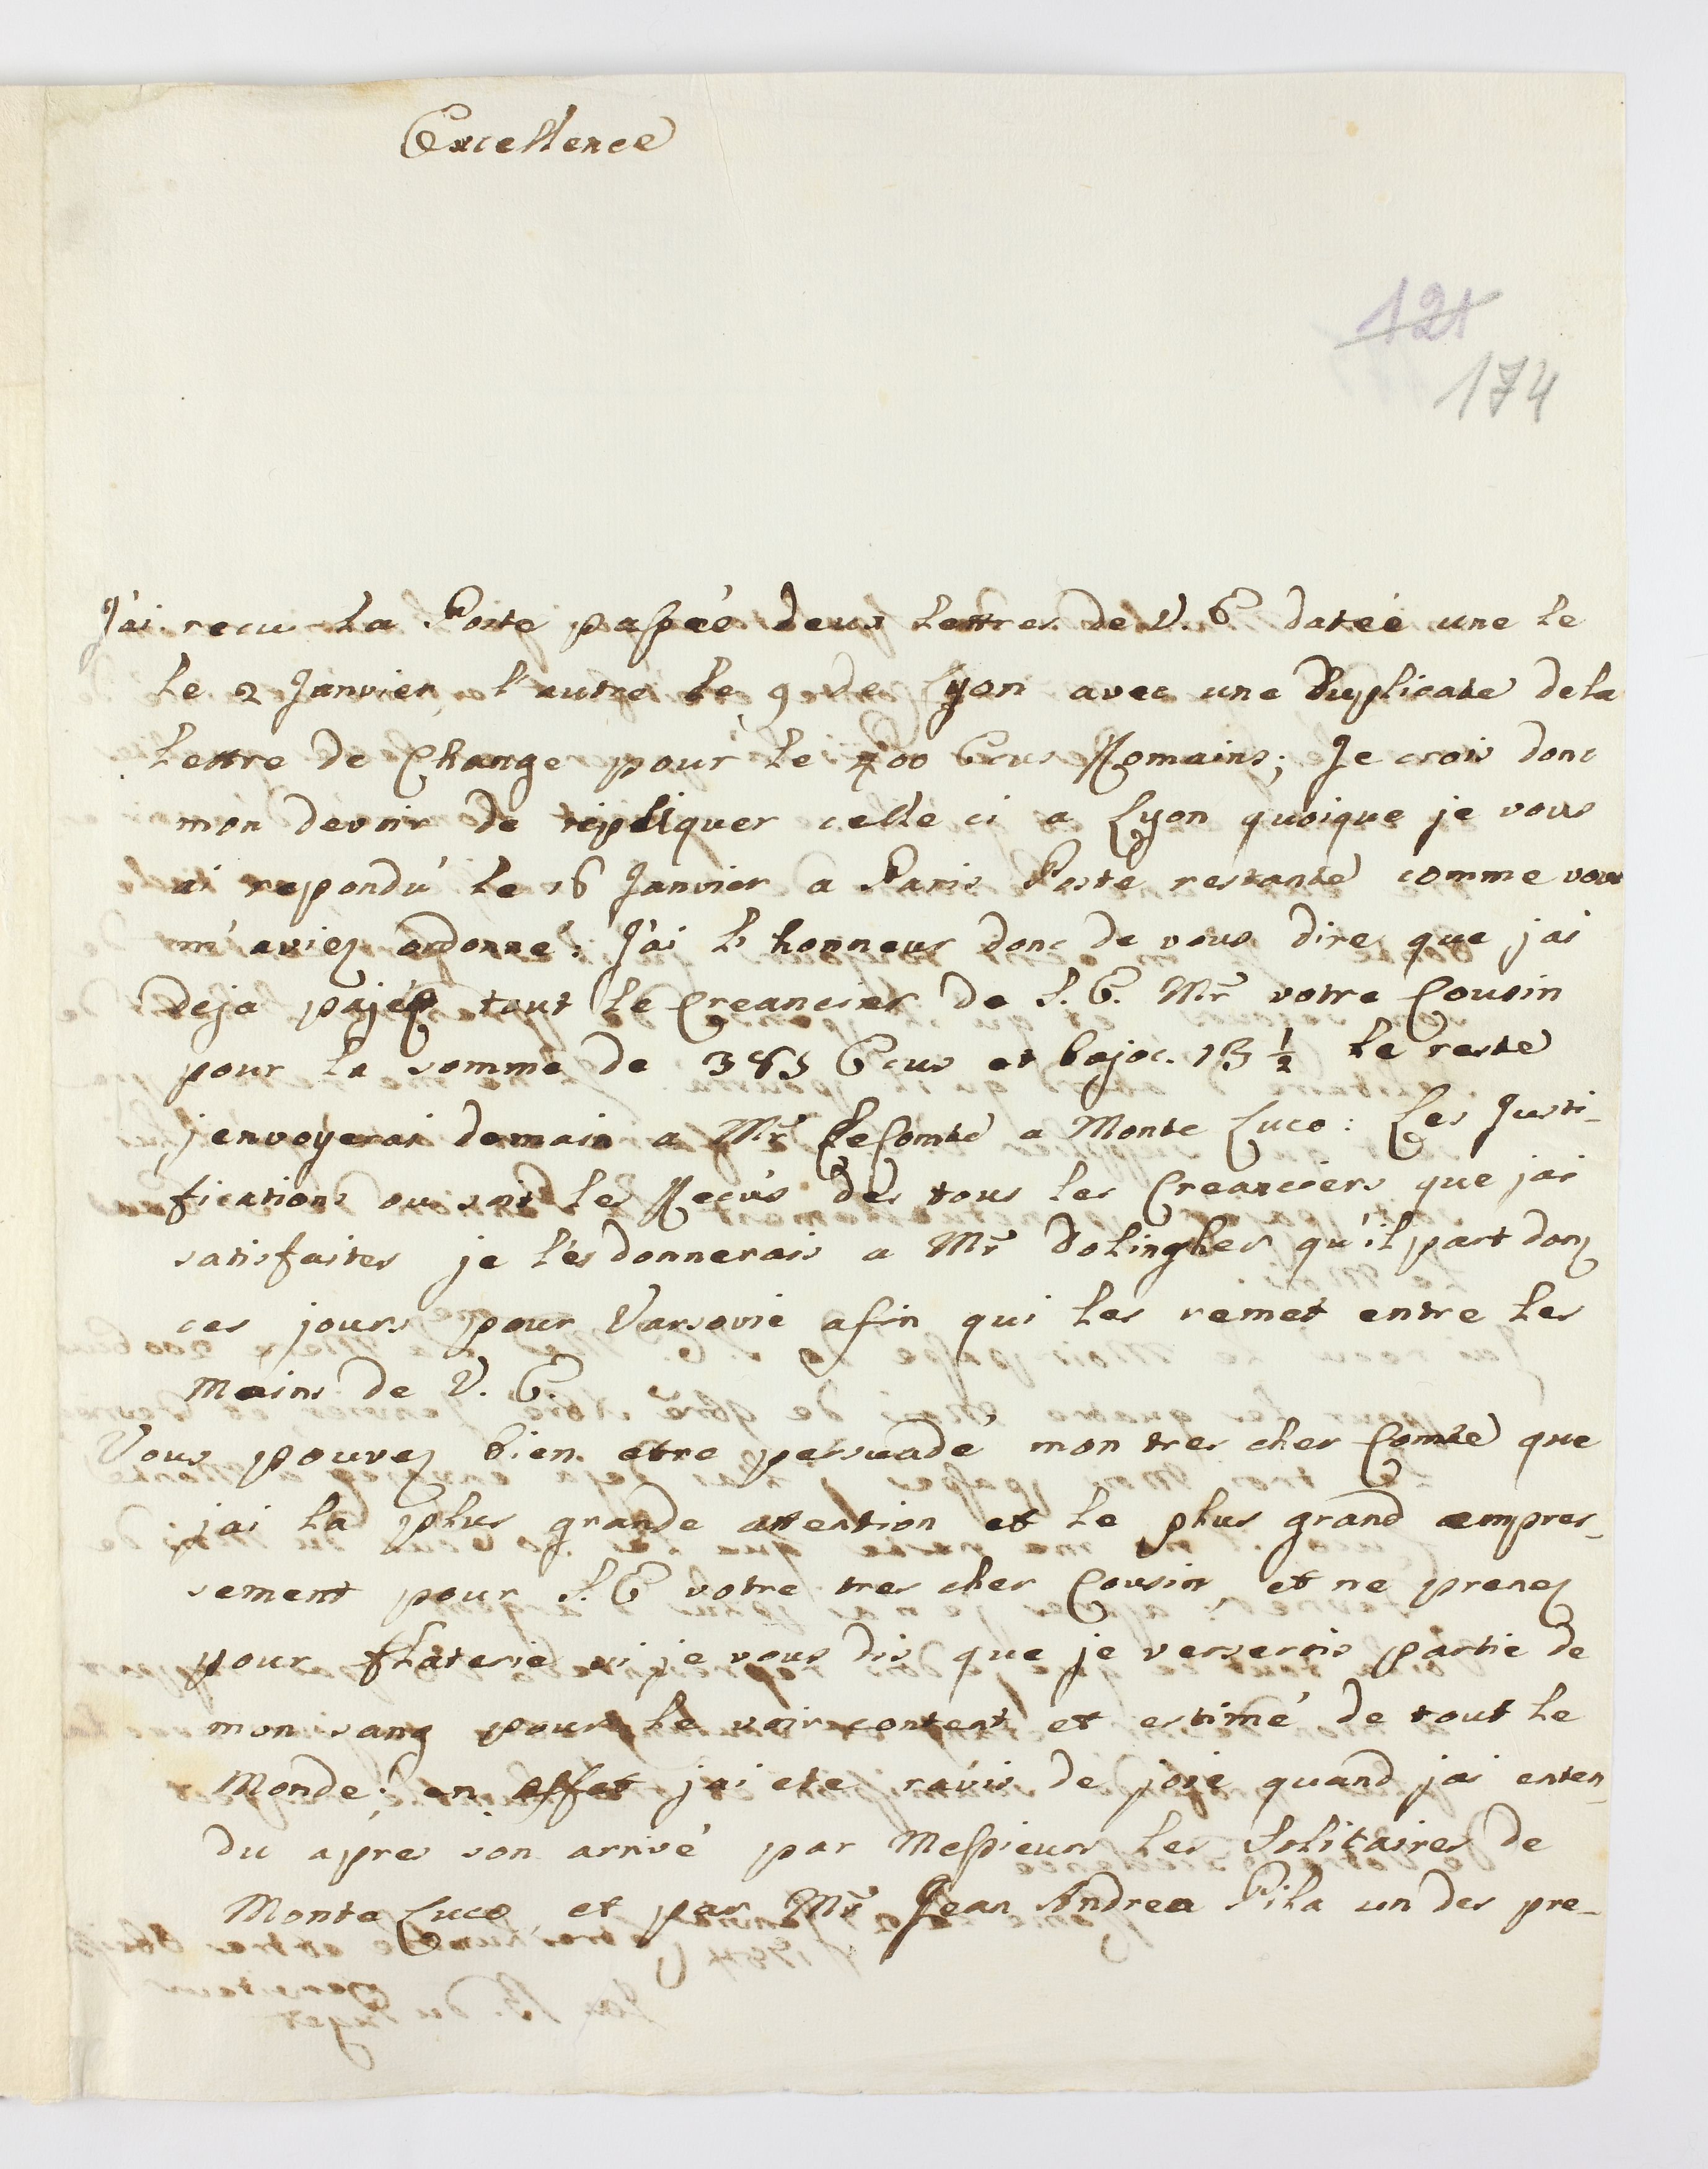 Excellence
121
174
J'ai recu la Poste passée deux lettres de V. E datée une le
le 2 Janvier, l'autre le 9 de Lyon avec une Duplicate de la
lettre de Change pour le 400 Ecus Romains; Je crois donc
mon devoir de repliquer celle ci a Lyon quoique je vous
ai repondu le 16 Janvier a Paris Poste restante comme vous
m'aviez ordonné: J'ai l'honneur donc de vous dire que jai
deja pajéz tout le Creancier de S. E. Mr votre Cousin
pour la somme de Ecus et bajoc. 13 ½ le reste
j'envoyerai demain a Mr le Comte a Monte Luco: Les Justi-
fications ou soit les Recus des tous les Creanciers que jai
satisfaites je les donnerais a Mr Dolingher qu'il part donz
ces jours pour Varsovie afin qui les remet entre les
mains de V. E.
Vous pouvez bien etre persuadé mon tres cher Comte que
jai la plus grande attention et le plus grand empres-
sement pour S. E votre tres cher Cousin et ne prenez
pour flaterie si je vous dis que je verserois partie de
mon sang pour le voir content et estimé de tout le
Monde; en effet jai ete ravis de joie quand jai enten-
du apres son arrivé par Messieurs les Solitaires de
Monte Luco, et par Mr Jean Andrea Pila un des pre-